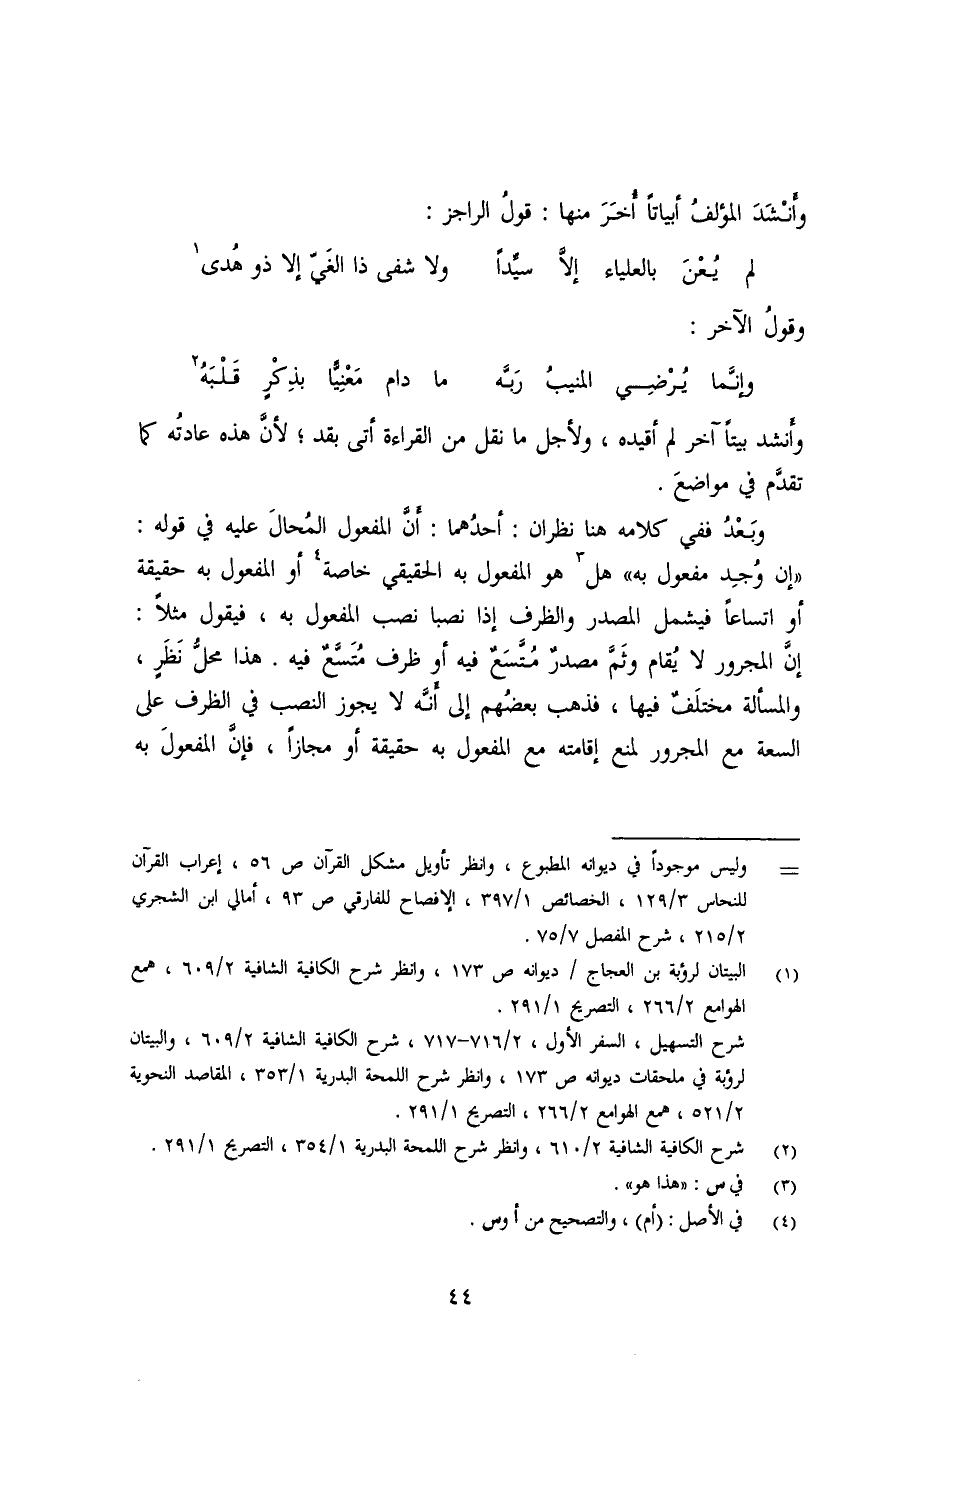 وأَنْشَدَ المؤلفُ أبياتاً أُخَرَ منها : قولُ الراجز :
لم يُـعْنَ بالعلياء إلاَّ سيِّداً ولا شفى ذا الغَيِّ إلا ذو هُدى١
وقولُ الآخر :
وإنَّما يُـرْضِـي المنيبُ رَبَّه ما دام مَعْنِيًّا بذِكْرٍ قَـلْبَهُ٢
وأَنشد بيتاً آخر لم أقيده ، ولأجل ما نقل من القراءة أتى بقد ؛ لأنَّ هذه عادتُه كما
تقدَّم في مواضعَ .
وبَعْدُ ففي كلامه هنا نظران : أحدُهما : أَنَّ المفعول المُحالَ عليه في قوله :
«إن وُجِد مفعول به» هل٣ هو المفعول به الحقيقي خاصة٤ أو المفعول به حقيقة
أو اتساعاً فيشمل المصدر والظرف إذا نصبا نصب المفعول به ، فيقول مثلاً :
إنَّ المجرور لا يُقام وثَمَّ مصدرٌ مُتَّسَعٌ فيه أو ظرف مُتَسَّعٌ فيه . هذا محلُّ نَظَرٍ ،
والمسألة مختلَفٌ فيها ، فذهب بعضُهم إلى أَنَّه لا يجوز النصب في الظرف على
السعة مع المجرور لمنع إقامته مع المفعول به حقيقة أو مجازاً ، فإنَّ المفعولَ به
= وليس موجوداً في ديوانه المطبوع ، وانظر تأويل مشكل القرآن ص ٥٦ ، إعراب القرآن
للنحاس ١٢٩/٣ ، الخصائص ٣٩٧/١ ، الإفصاح للفارقي ص ٩٣ ، أمالي ابن الشجري
٢١٥/٢ ، شرح المفصل ٧٥/٧ .
(١) البيتان لرؤبة بن العجاج / ديوانه ص ١٧٣ ، وانظر شرح الكافية الشافية ٦٠٩/٢ ، همع
الهوامع ٢٦٦/٢ ، التصريح ٢٩١/١ .
شرح التسهيل ، السفر الأول ، ٧١٦/٢-٧١٧ ، شرح الكافية الشافية ٦٠٩/٢ ، والبيتان
لرؤبة في ملحقات ديوانه ص ١٧٣ ، وانظر شرح اللمحة البدرية ٣٥٣/١ ، المقاصد النحوية
٥٢١/٢ ، همع الهوامع ٢٦٦/٢ ، التصريح ٢٩١/١ .
(٢) شرح الكافية الشافية ٦١٠/٢ ، وانظر شرح اللمحة البدرية ٣٥٤/١ ، التصريح ٢٩١/١ .
(٣) في س : «هذا هو» .
(٤) في الأصل : (أم) ، والتصحيح من أ وس .
٤٤